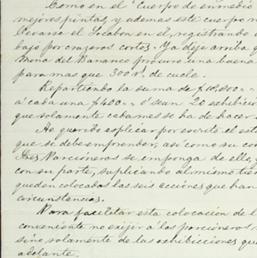 Como en el Cuerpo de enmedio
mejores pintas, y ademas este cuerpo
llevarse el Socabon en el, registrando
bajo por cruzeros cortos. Ya dije arriba
del Barranco procuro una buena
para mas que 300 v.s de cuelo.
Repartiendo la suma de $
a cada una $400 " ó sean 20 exhibicion
que solamente cabamos se ha de hacer
He querido esplicar por escrito el esta
que si debe emprender, así como su co
Parcioneros se imponga de ello,
con su parte, suplicando al mismo tiem
queden colocadas las seis acciones que han
circunstancias.
Para facilitar esta colocacion de l
conveniente no exijir á los parcioneros
sino solamente de las exhibiciones que
adelante.